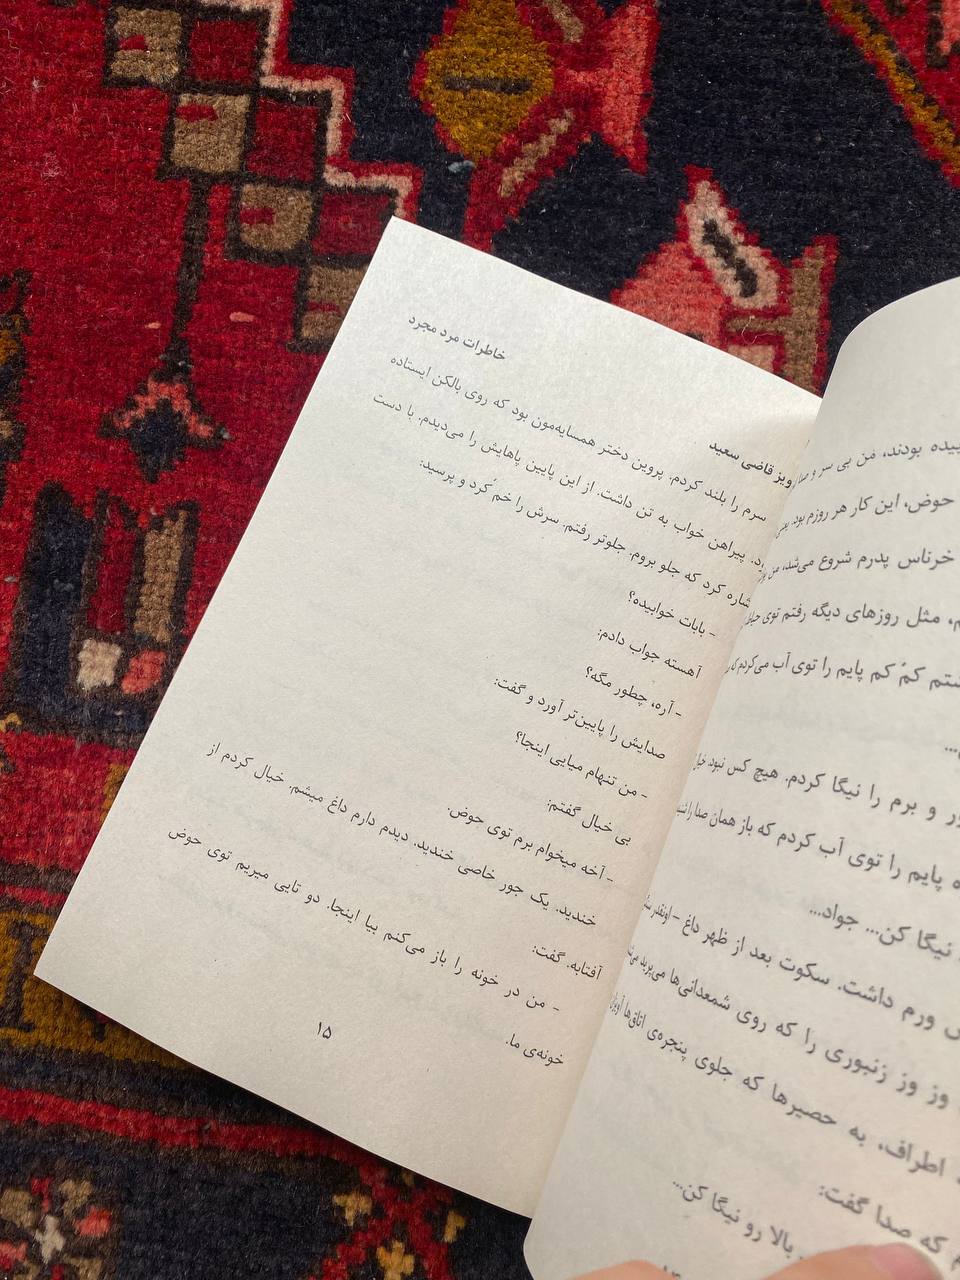 بودند، من بی سر و صدا
حوض، این کار هر روزم بود. یعنی
خرناس پدرم شروع می‌شد، من
مثل روزهای دیگه رفتم توی
کم کم پایم را توی آب می‌کردم که
...
و برم را نیگا کردم. هیچ کس نبود. خیال
پایم را توی آب کردم که باز همان صدا را
نیگا کن... جواد...
ورم داشت. سکوت بعد از ظهر داغ – اونقدر
وز وز زنبوری را که روی شمعدانی‌ها می‌پرید
اطراف، به حصیرها که جلوی پنجره‌ی اتاق‌ها
که صدا گفت:
بالا رو نیگا کن...
قاضی سعید
خاطرات مرد مجرد
سرم را بلند کردم. پروین دختر همسایه‌مون بود که روی بالکن ایستاده
پیراهن خواب به تن داشت. از این پایین پاهایش را می‌دیدم. با دست
کرد که جلو بروم. جلوتر رفتم. سرش را خم کرد و پرسید:
- بابات خوابیده؟
آهسته جواب دادم:
- آره، چطور مگه؟
صدایش را پایین‌تر آورد و گفت:
- من تنهام میایی اینجا؟
بی خیال گفتم:
- آخه میخوام برم توی حوض.
خندید. یک جور خاصی خندید. دیدم دارم داغ میشم. خیال کردم از
آفتابه. گفت:
- من در خونه را باز می‌کنم بیا اینجا. دو تایی میریم توی حوض
خونه‌ی ما.
۱۵